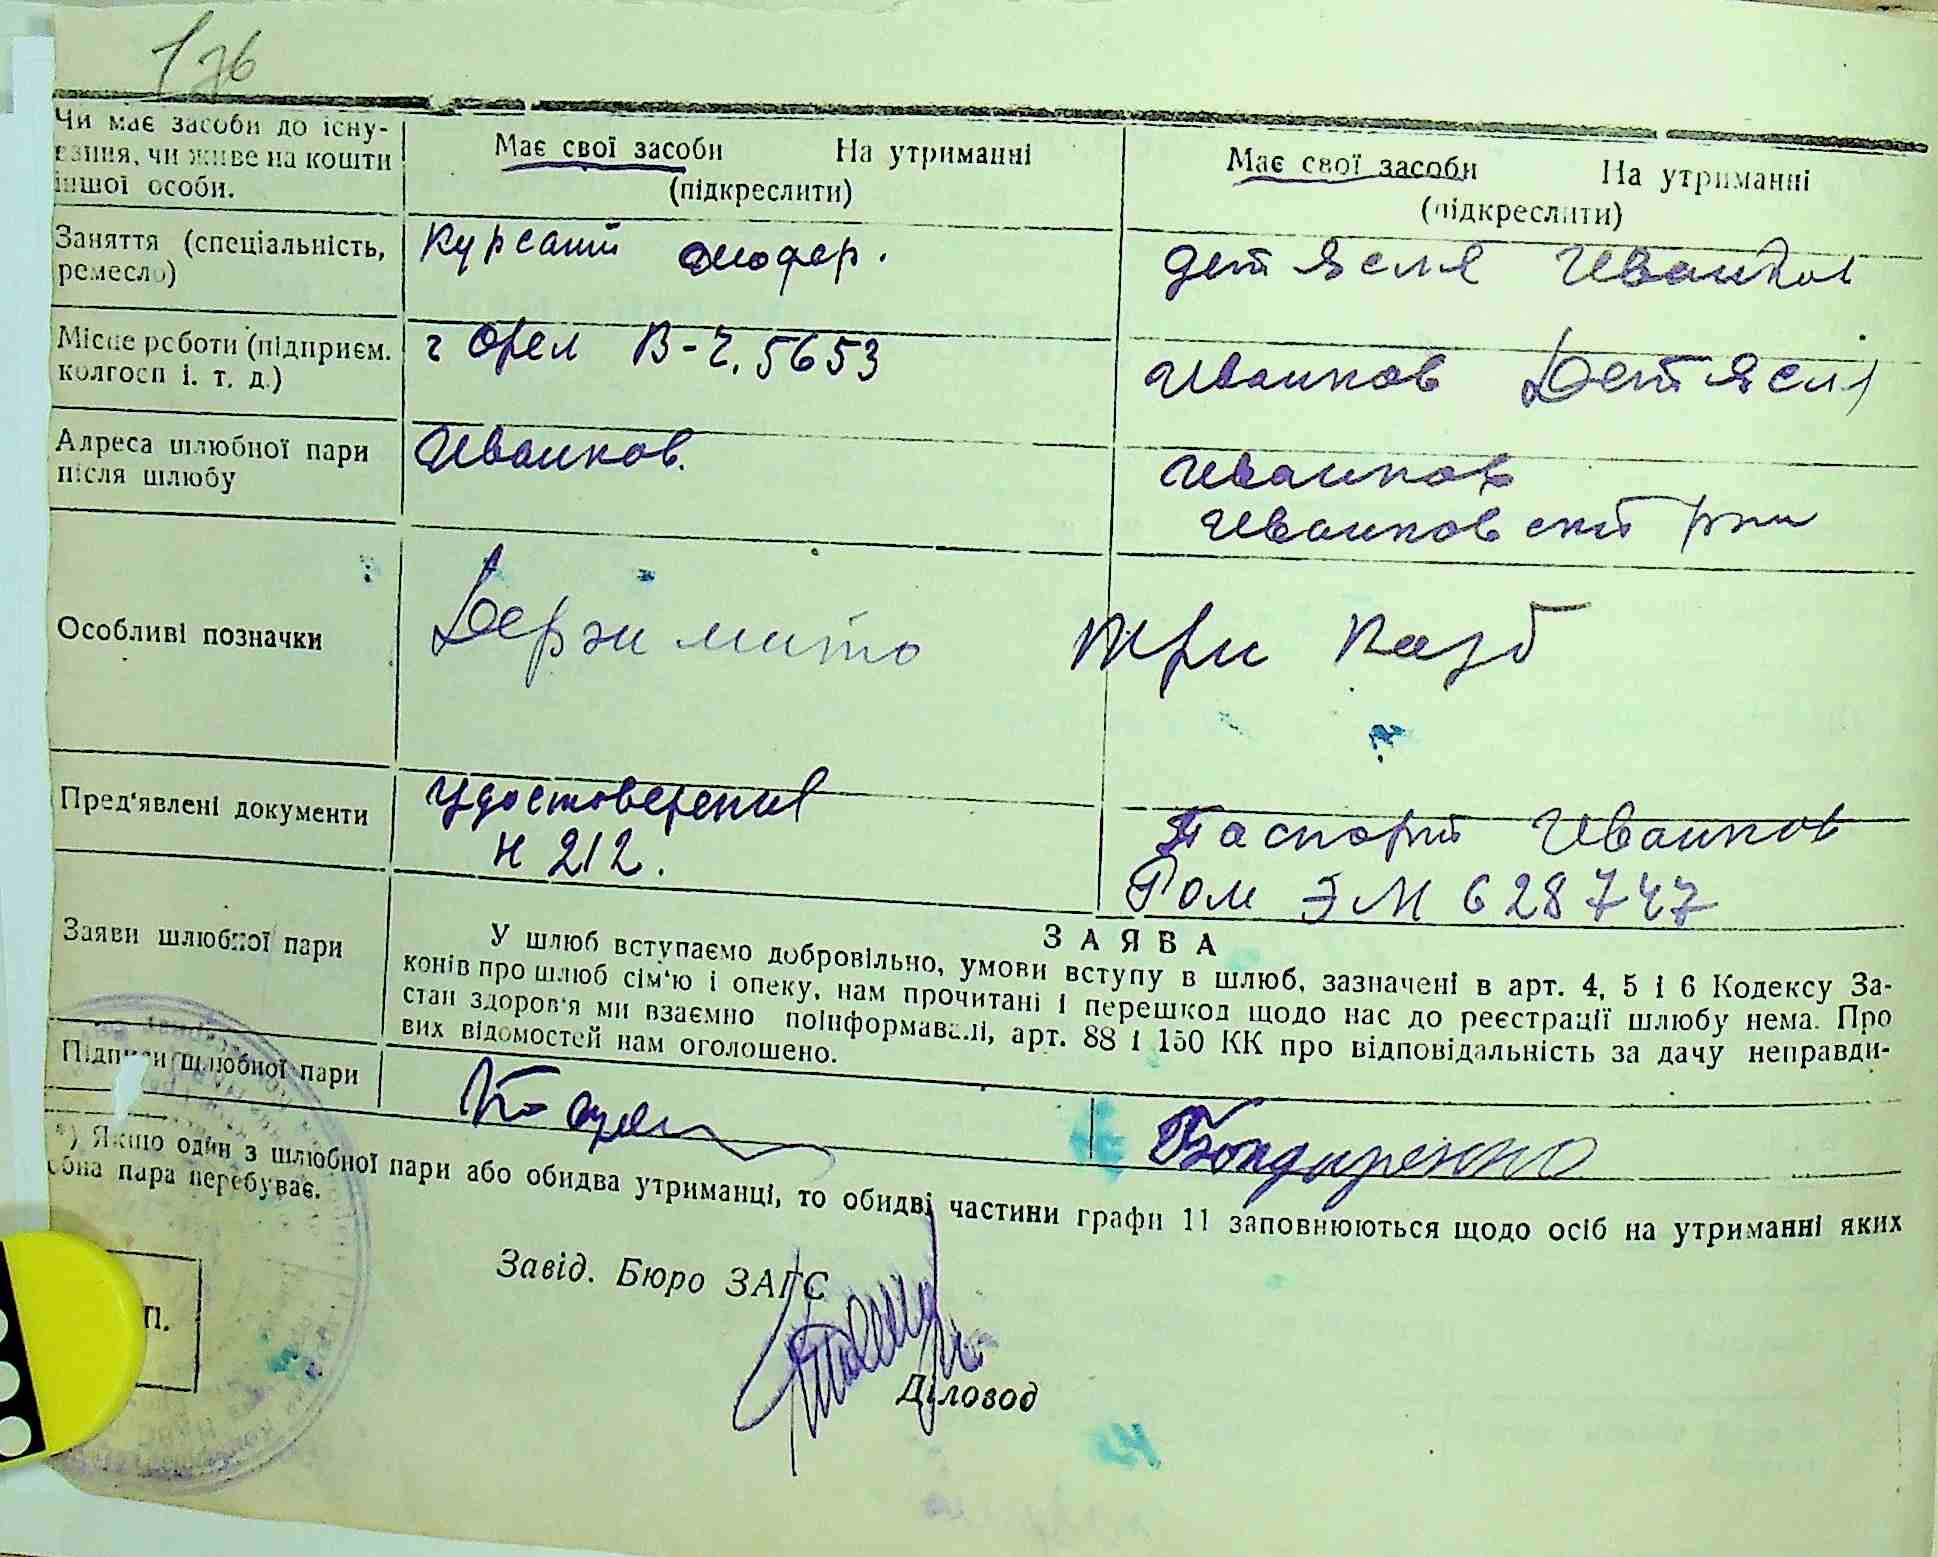 176
Чи має засоби до існу-
вання, чи живе на кошти
іншої особи.
Має свої засоби На утриманні
(підкреслити)
Має свої засоби На утриманні
(підкреслити)
Заняття (спеціальність,
ремесло)
Курсант шофер.
дет ясля Иванков
Місце роботи (підприєм.
колгосп і. т. д.)
г Орел В-ч. 5653
Иванков Детясля
Адреса шлюбної пари
після шлюбу
Иванков.
Иванков
Иванковский рн
Особливі позначки
Держ мито три карб
Пред'явлені документи
Удостоверение
Н 212.
Паспорт Иванков
Ром ЭМ 628747
Заяви шлюбної пари
ЗАЯВА
У шлюб вступаємо добровільно, умови вступу в шлюб, зазначені в арт. 4, 5 і 6 Кодексу За-
конів про шлюб сім'ю і опеку, нам прочитані і перешкод щодо нас до реєстрації шлюбу нема. Про
стан здоров'я ми взаємно поінформавалі, арт. 88 і 150 КК про відповідальність за дачу неправди-
вих відомостей нам оголошено.
Підписи шлюбної пари
Бондаренко
*) Якшо один з шлюбної пари або обидва утриманці, то обидві частини графи 11 заповнюються щодо осіб на утриманні яких
обна пара перебуває.
Завід. Бюро ЗАГС
П.
Діловод